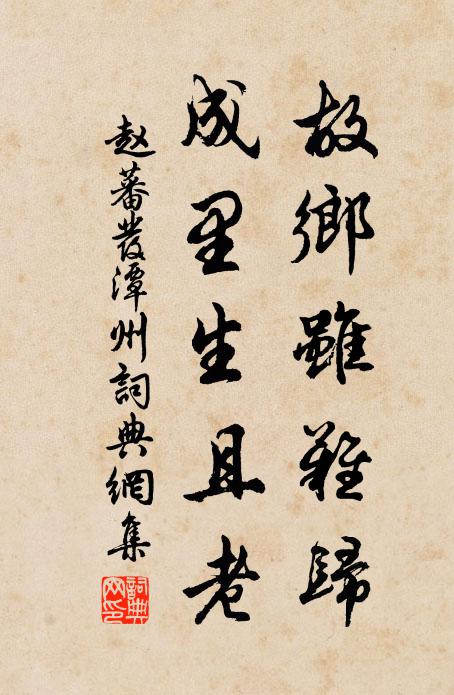 故鄉雖難歸
成里生且老
赵蕃發潭州詞典網集
詞典網印